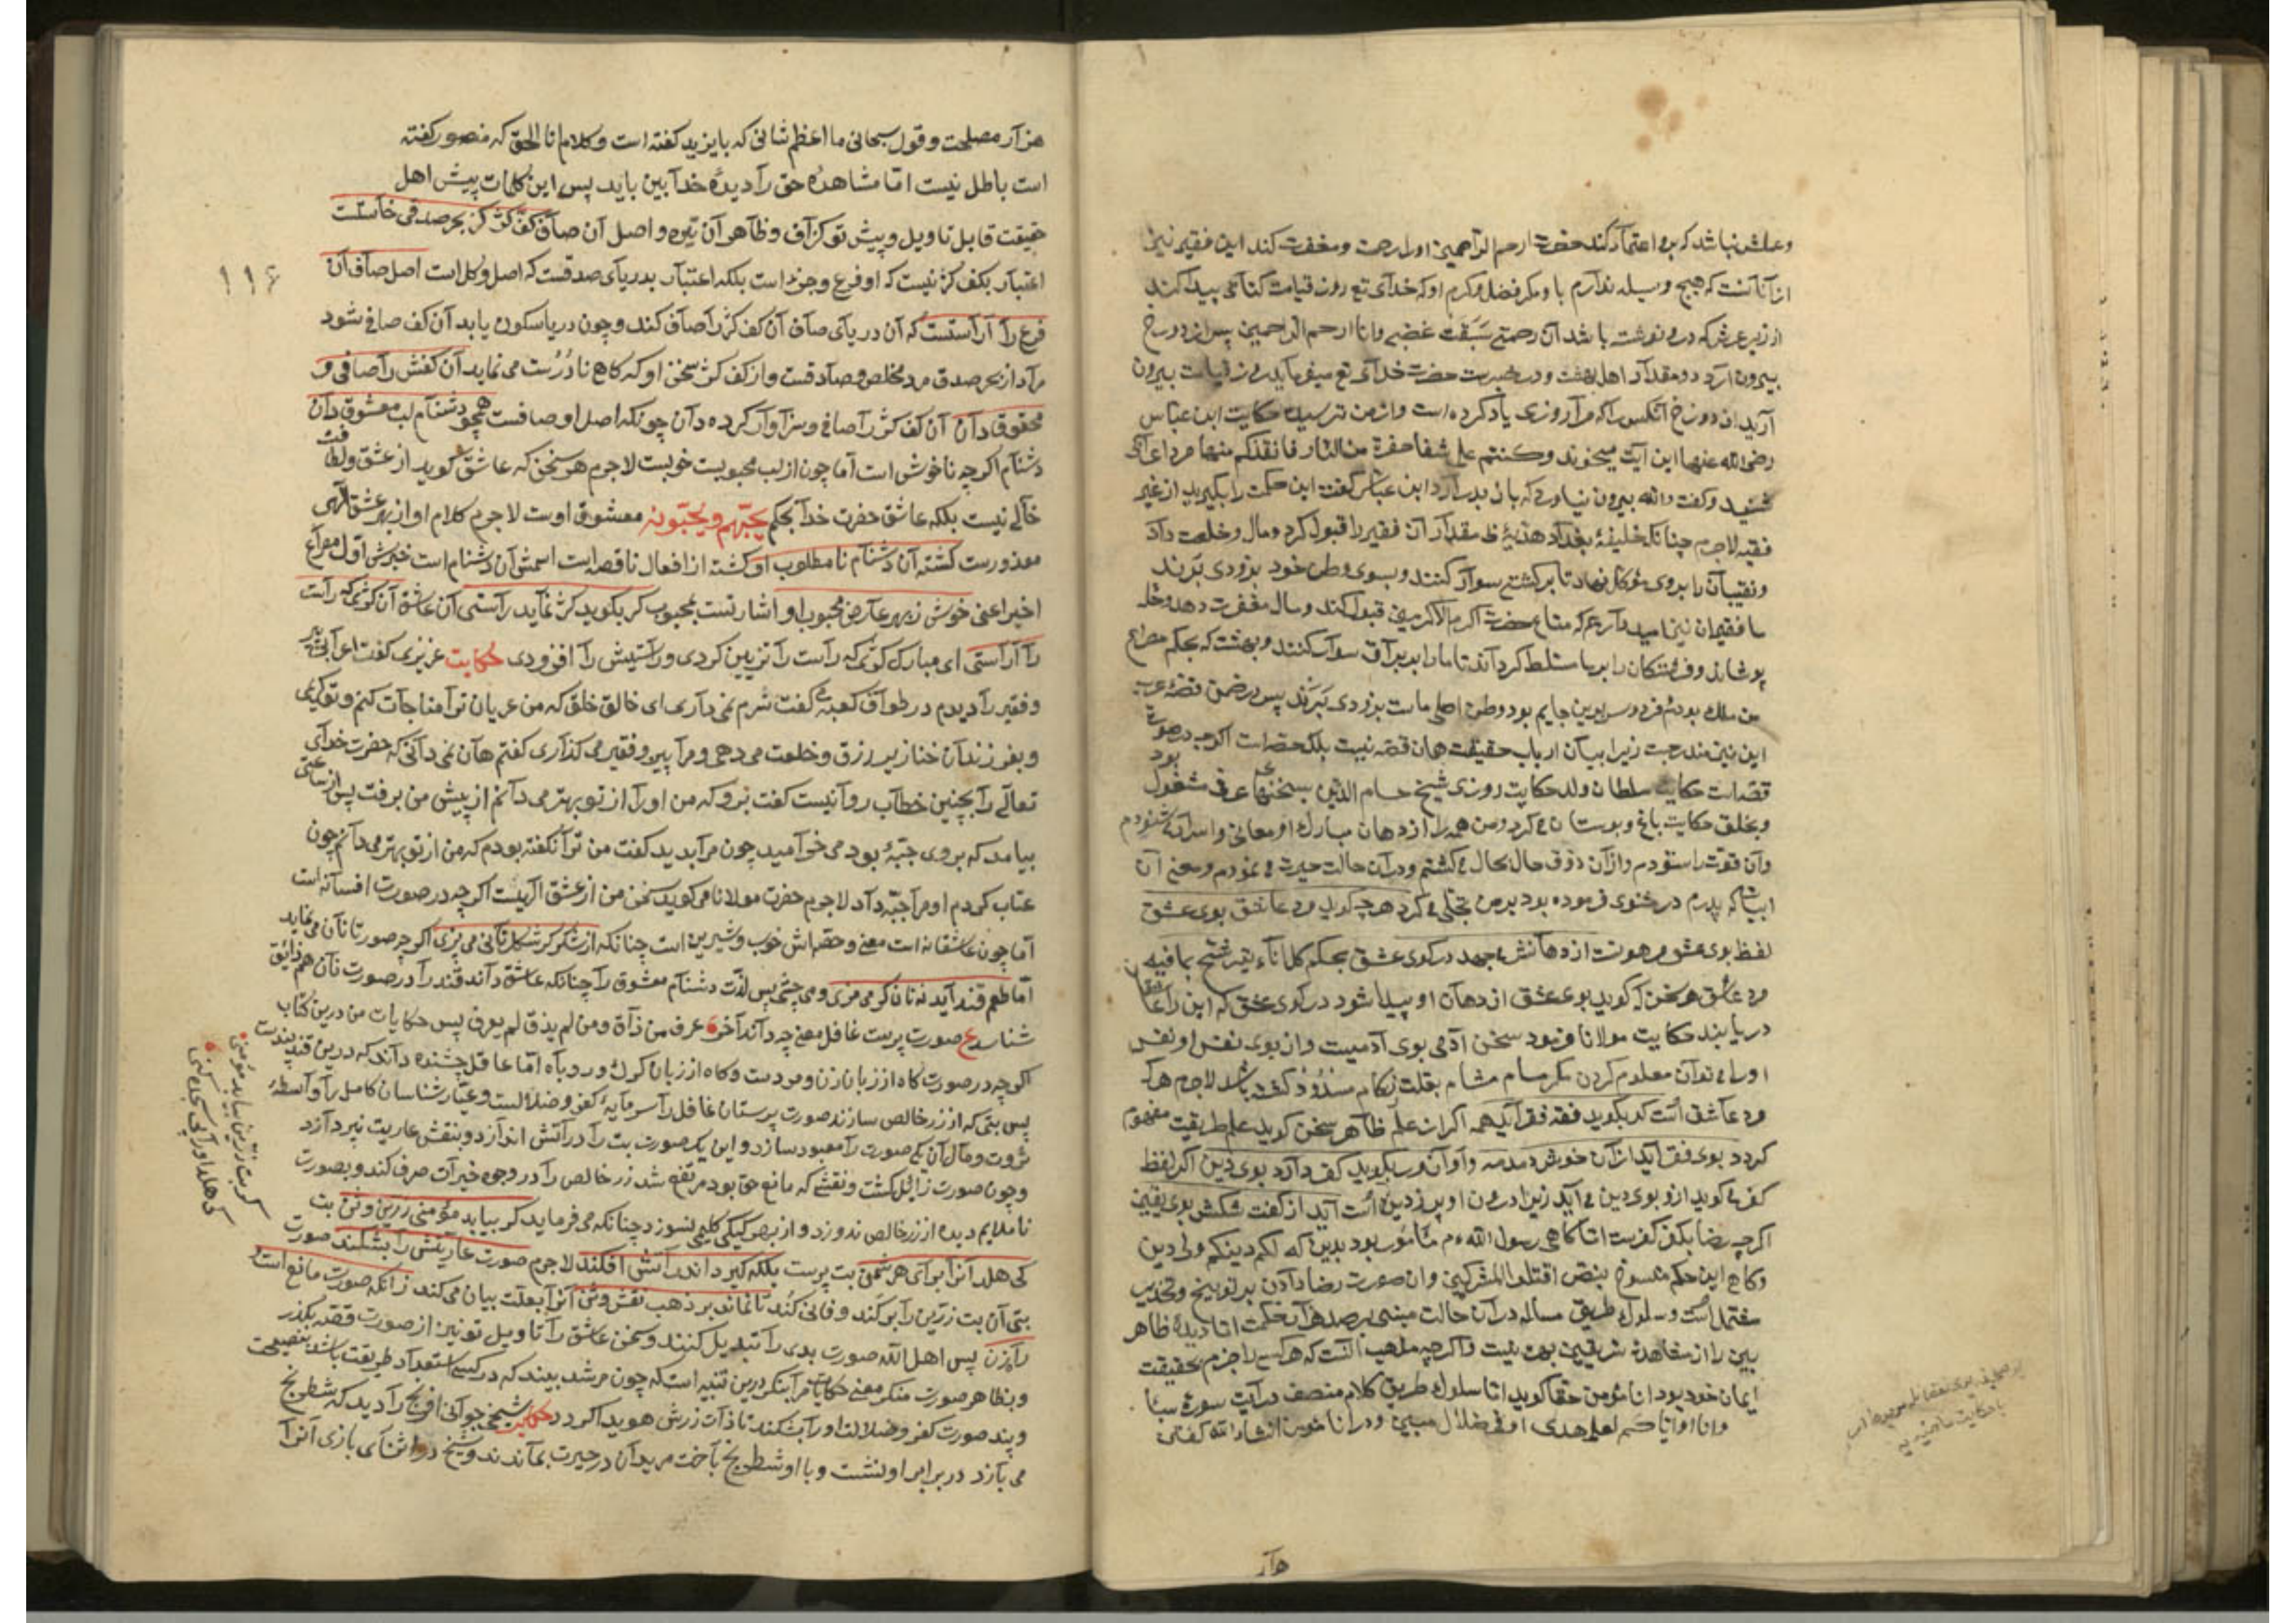 وعملش نباشد که بر او اعتماد کند حضرت ارحم الراحمین او را رحمت و مغفرت کند این فقیر نیز
از آنانست که هیچ وسیله ندارم مگر فضل و کرم او که خدای تع روز قیامت کتابی پیدا کند
از زیر عرش که درو نوشته باشد آن رحمتی سبقت غضبی وانا ارحم الراحمین پس از دوزخ
بیرون آرد دو مقدار اهل بهشت و در خبرست حضرت خدای تع میفرماید روز قیامت بیرون
آرید از دوزخ آنکس را که مرا روزی یاد کرده است و از من ترسیده حکایت ابن عباس
رضی الله عنهما این آیت میخواند وکنتم علی شفا حفرة من النار فانقذکم منها مردی اعرابی
شنید و گفت والله بیرون نیاورد که باز بدر آرد ابن عباس گفت این حکمت را بگیرید از غیر
فقیه لاجرم چنانکه خلیفهٔ بغداد هدیهٔ مقدار آن فقیر را قبول کرد و مال و خلعت داد
ونقیبان را بروی موکل نهاد تا بر کشتی سوار کنند و بسوی وطن خود بزودی برند
ما فقیران نیز امیدواریم که متاع حضرت اکرم الاکرمین قبول کند و مال مغفرت دهد وحله
پوشاند و فرشتگان را بر ما مسلط گرداند تا ما را بر براق سوار کنند و بهشت که بحکم مصراع
من ملک بودم فردوس برین جایم بود وطن اصلی ماست بزودی برند پس در ضمن قصهٔ عرب
این نیز مندرجست زیرا بیان ارباب حقیقت همان قصه نیست بلکه حصه است اگرچه در صورت
قصه است حکایت سلطان ولد حکایت روزی شیخ حسام الدین بسخنهای عرفی مشغول بود
و بخلق حکایت باغ و بوستان می کرد و من همه را از دهان مبارک او معانی و اسرار می شنودم
وآن قوت را ستودم و از آن ذوق حال بحال می گشتم و در آن حالت حیرت می نمودم و معنی آن
ابیات که پدرم در مثنوی فرموده بود بر من تجلی می کرد هرچه گوید مرد عاشق بوی عشق
لفظ بوی عشق مرهونست از دهانش می جهد در کوی عشق بحکم کل اناء یترشح بما فیه
مرد عاشق هر سخن که گوید بوی عشق از دهان او پیدا شود در کوی عشق که این را عاشقان
دریابند حکایت مولانا فرمود سخن آدمی بوی آدمیست و از بوی نفس او نفس
او را می توان معلوم کردن مگر مسام مشام بعلت زکام مسدود گشته باشد لاجرم هر که
مرد عاشق است گر بگوید فقه فقر آید همه اگر از علم ظاهر سخن گوید علم طریقت مفهوم
گردد بوی فقر آید از آن خوش دمدمه وآوآن ور بگوید کفر دارد بوی دین اگر لفظ
کفر می گوید ازو بوی دین می آید زیرا درون او پر ز دین است آید از گفت شکش بوی یقین
اگرچه رضا بکفر کفرست اما گاهی رسول الله ءم مأمور بود بدین که لکم دینکم ولی دین
وگاه این حکم منسوخ بنص اقتلوا المشرکین وآن صورت رضا دادن بر توبیخ و تحذیر
مشتمل است و سلوک طریق مساله در آن حالت مبنی بر صد هزار حکمت اما دیدهٔ ظاهر
بین را از مشاهده
ایمان خود بود انا مؤمن حقا گوید اما سلوک طریق کلام منصف در آیت سورهٔ سبأ
وانا او ایاکم لعلی هدی او فی ضلال مبین ودر انا مؤمن انشاء الله گفتن
هزار
هزار مصلحت و قول سبحانی ما اعظم شانی که بایزید گفته است و کلام انا الحق که منصور گفته
است باطل نیست اما مشاهدهٔ حق را دیدهٔ خدا بین باید پس این کلمات پیش اهل
حقیقت قابل تاویل و پیش تو گزاف و ظاهر آن تیره و اصل آن صاف کف کژ کز بحر صدقی خاستست
اعتبار بکف کژ نیست که او فرع و جزء است بلکه اعتبار بدریای صدقست که اصل و کل است اصل صاف آن
فرع را آراستست که آن دریای صاف آن کف کژ را صاف کند و چون دریا سکون یابد آن کف صافی شود
مراد از بحر صدق مرد مخلص و صادقست و از کف کژ سخن او که گاه نادرست می نماید آن کفش را صافی و
محقوق دان آن کف کژ را صافی و سزاوار کرده دان چونکه اصل او صافست همچو دشنام لب معشوق دان
دشنام اگرچه ناخوش است اما چون از لب محبوبست خوبست لاجرم هر سخن که عاشق گوید از عشق ولطافت
خالی نیست بلکه عاشق حضرت خدا بحکم یحبهم ویحبونه معشوق اوست لاجرم کلام او از بهر عشق الهی
معذورست گشته آن دشنام نامطلوب او گشته از افعال ناقصه است اسمش آن دشنام است خبرش اول مصراع
اخیر اعنی خوش ز بهر عارض محبوب او اشارتست بمحبوب گر بگوید کژ نماید راستی آن عاشق آن کژئی که راست
را آراستی ای مبارک کژئی که راست را تزیین کردی و راستیش را افزودی حکایت عزیزی گفت اعرابی پیر
و فقیر را دیدم در طواف کعبه گفت شرم نمی داری ای خالق خلق که من عریان ترا مناجات کنم و تو کریمی
و بفرزندان خنازیر رزق و خلعت می دهی و مرا پیر و فقیر می گذاری گفتم هان نمی دانی که حضرت خدای
تعالی را بچنین خطاب روا نیست گفت برو که من او را از تو بهتر می دانم از پیش من برفت پس از ساعتی
بیامد که بروی جبهٔ بود می خرامید چون مرا بدید گفت من ترا نگفته بودم که من از تو بهتر می دانم چون
عتاب کردم او مرا جبه داد لاجرم حضرت مولانا می گوید سخن من از عشق الهیست اگرچه در صورت افسانه است
اما چون عاشقانه است معنی و حصه اش خوب و شیرین است چنانکه از شکر گر شکل نانی می پزی اگرچه صورتا نان می نماید
اما طعم قند آید نه نان گر می مزی ومی چشی پس لذت دشنام معشوق را چنانکه عاشق داند قند را در صورت نان هم ذائق
شناسد ع صورت پرست غافل معنی چه داند آخر عرف من ذاق ومن لم یذق لم یعرف پس حکایات من درین کتاب
اگرچه در صورت گاه از زبان زن و مردست و گاه از زبان گرگ و روباه اما عاقل چشنده داند که درین قند پندست
پس بتی که از زر خالص سازند صورت پرستان غافل را سرمایهٔ کفر و ضلالست و عیار شناسان کامل را واسطهٔ
ثروت و مال آن یکی صورت را معبود سازد و این یک صورت بت را در آتش اندازد و بنقش عاریت نپردازد
و چون صورت زائل گشت و نقشی که مانع حق بود مرتفع شد زر خالص را در وجوه خیرات صرف کند و بصورت
ناملایم دیده از زر خالص ندوزد و از بهر کیکی گلیمی نسوزد چنانکه می فرماید گر بیابد مؤمنی زرین وثن بت
کی هلد آنرا برای هر شمن بت پرست بلکه گیرد اندر آتش افکند لاجرم صورت عاریتش را بشکند صورت
بتی آن بت زرین را برکند و فانی کند تا نماند بر ذهب نقش وثن آنرا بعلت بیان می کند زانکه صورت مانع است
راه زن پس اهل الله صورت بدی را تبدیل کنند و سخن عاشق را تاویل تو نیز از صورت قصه بگذر
و بظاهر صورت منگر معنی حکایات مرا بنگر درین تنبیه است که چون مرشد بیند که در کسی استعداد طریقت باشد بنصیحت
و پند صورت کفر و ضلالت او را بشکند تا ذات زرش هویدا گردد حکایت شیخی جوانی افرنج را دید که شطرنج
می بازد در برابر او نشست و با او شطرنج باخت مریدان در حیرت بماندند و شیخ در اثنای بازی آنرا
۱۱۶
گر بت زرین بیابد مؤمنی
کی هلد او را پی سجده کنی